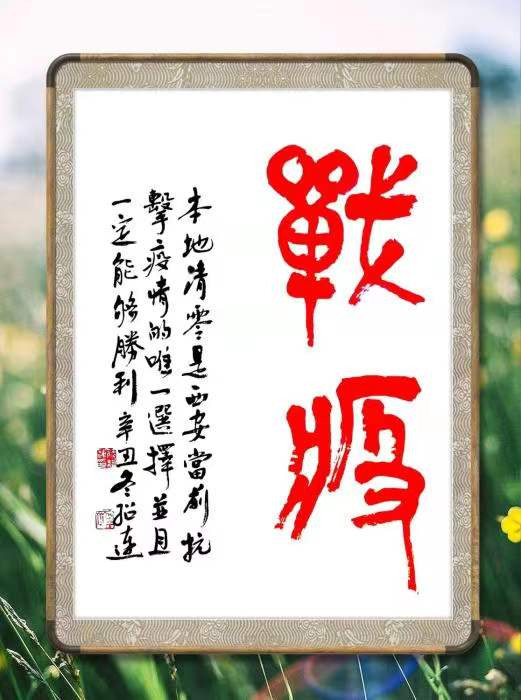 戰疫
本地清零是西安當前抗
擊疫情的唯一選擇並且
一定能够勝利 辛丑冬 连